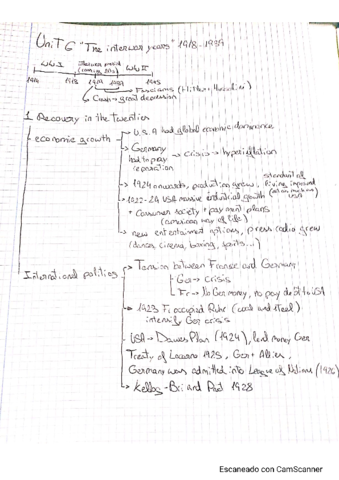 UNIT 6 "The interwar years" 1918-1939
WW I Interwar period WW II
1914 1918 1929 1939 1945
Fascisms (Hitler, Mussolini)
Crash - great depression
1 Recovery in the Twenties
economic growth
U.S.A had global economic dominance
Germany had to pay reparation → crisis → hyperinflation
1924 onwards, production grew, standard of living improved
1922-29 USA massive industrial growth
+ Consumer society + payment plans
(american way of life)
new entertaiment options, press radio grew
(dance, cinema, boxing, sports...)
International politics
Tension between France and Germany
Ger → crisis
Fr → No Ger money, no pay debt to USA
1923 Fr occupied Ruhr (coal and steel)
intensify Ger crisis
USA → Dawes Plan (1924), lend money Ger
Treaty of Locarno 1925, Ger + Allies,
Germany was admitted into League of Nations (1926)
Kellog-Briand Pact 1928
Escaneado con CamScanner